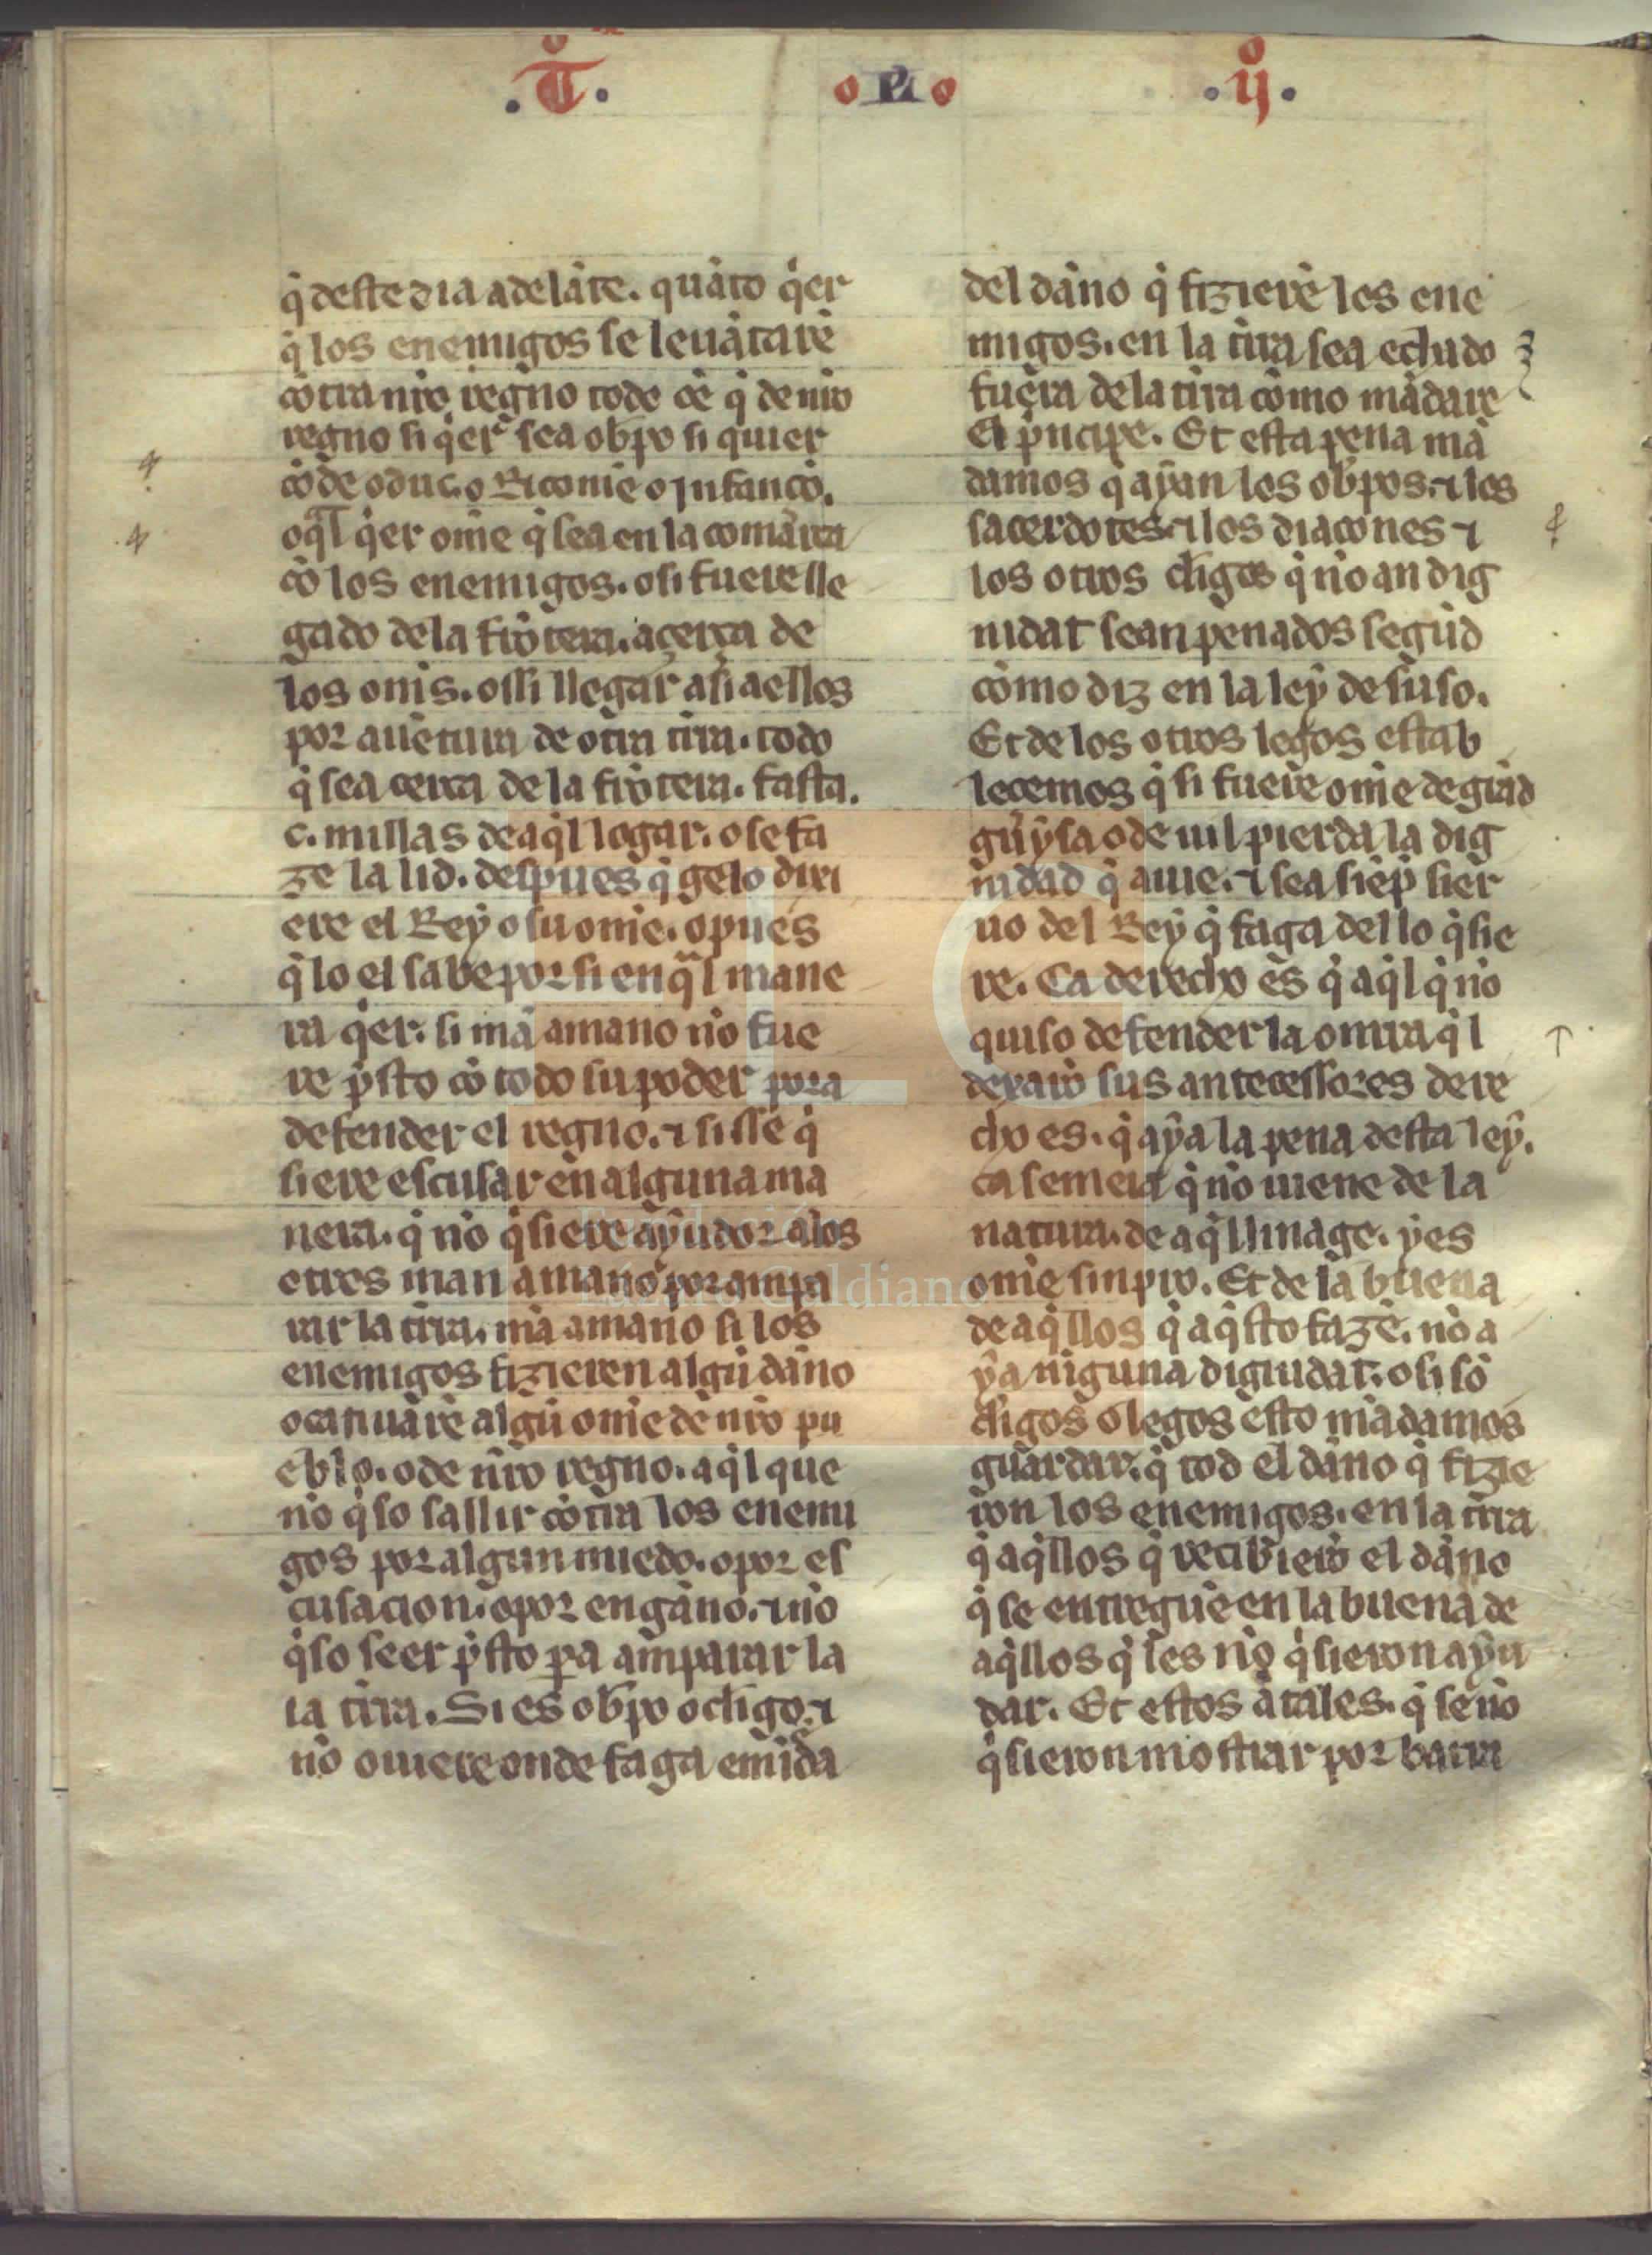 .T̊. o IX o .ij̊.
q̇ deste dia adelāte. quāto q̇er
q̇ los enemigos se leuātarē
cōtra nr̄o regno tode ōe q̇ de nr̄o
regno si q̇er sea obp̄o si quier
cōde o duc. o Ricome o Infancō.
o q̄l q̇er om̄e q̇ sea en la comarca
cō los enemigos. o si fuere lle
gado dela frōtera. açerca de
los om̄s. o ssi llegar asi a ellos
por auētura de otra tīra. todo
q̇ sea cerca de la frōtera. fasta.
c. millas de aq̇l logar. o se fa
ze la lid. despues q̇ gelo dixi
ere el Rey o su om̄e. o pues
q̇ lo el sabe por si en q̄l mane
ra q̇er. si mā amano nō fue
re p̄sto cō todo su poder pora
defender el regno. ⁊ si sse q̇
siere escusar en alguna ma
nera. q̇ nō q̇siere ayudor alos
otros man amano por ampa
rar la tīra. mā amano si los
enemigos fizieren algū dāno
o catiuārē algū om̄e de nr̄o pu
eblo. o de nr̄o regno. aq̇l que
nō q̇so sallir cōtra los enemi
gos por algun miedo. o por es
cusacion. o por engāno. ⁊ nō
q̇so seer p̄sto pa amparar la
la tīra. Si es obp̄o o cligo. ⁊
nō ouiere onde faga emīda
del dāno q̇ fizierē los ene
migos. en la tīra sea echado
fuera de la tīra cōmo mādare
El p̄ncipe. Et esta pena mā
damos q̇ ayan los obp̄os. ⁊ los
sacerdotes. ⁊ los diacones ⁊
los otros cligos q̇ nō an dig
nidat sean penados segūd
cōmo diz en la ley de suso.
Et de los otros legos estab
lecemos q̇ si fuere om̄e de grād
guysa o de uil pierda la dig
nidad q̇ auie. ⁊ sea siēp̄ sier
uo del Rey q̇ faga dello q̇sie
re. Ca derecho es q̇ aq̇l q̇ nō
quiso defender la onrra q̇l
dexarō sus antecessores dere
cho es. q̇ aya la pena desta ley.
ca semeia q̇ nō uiene de la
natura. de aq̇l linage. y es
om̄e sin pro. Et de la buena
de aq̇llos q̇ aq̇sto fazē. nō a
ya niguna digiudat. o si sō
cligos o legos esto mādamos
guardar. q̇ tod el dāno q̇ fizie
ron los enemigos. en la tīra
q̇ aq̇llos q̇ recibierō el dāno
q̇ se entreguē en la buena de
aq̇llos q̇ les nō q̇sieron ayu
dar. Et estos atales. q̇ se nō
q̇sieron mostrar por barra